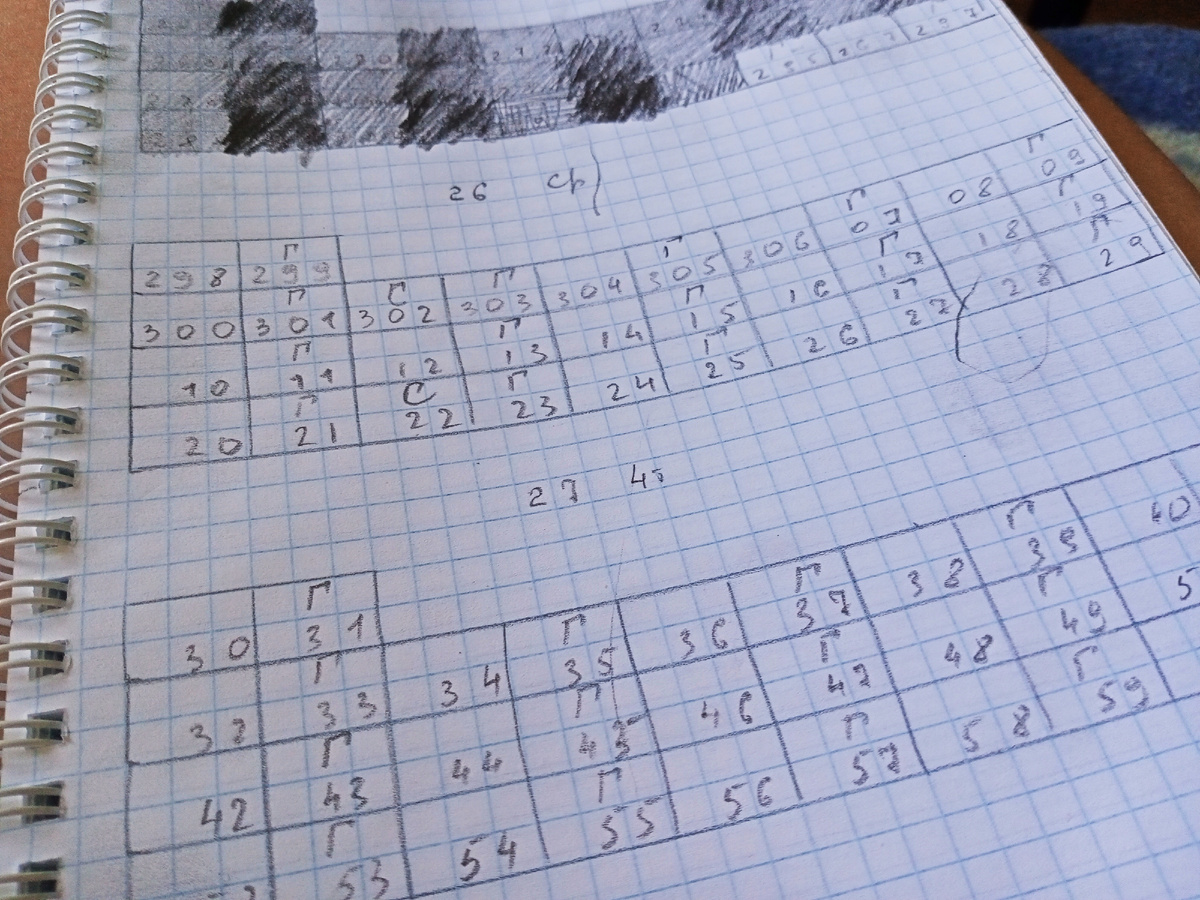 255 267 297
26 ср
Г
298 299
Г С Г Г Г Г
300 301 302 303 304 305 306 07 08 09
Г Г Г Г Г
10 11 12 13 14 15 16 17 18 19
Г С Г Г Г Г
20 21 22 23 24 25 26 27 28 29
27 чт
Г
30 31
Г Г Г Г
32 33 34 35 36 37 38 39 40
Г Г Г Г
42 43 44 45 46 47 48 49 5
Г Г Г Г
53 54 55 56 57 58 59